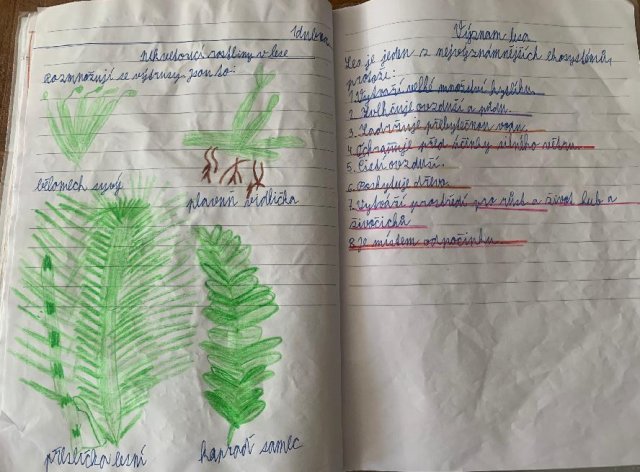 1 dubna
Nekvetoucí rostliny v lese
Rozmnožují se výtrusy jsou to:
bělomech sivý
plavuň vidlička
přeslička lesní
kapraď samec
Význam lesa
Les je jeden z nejvýznamnějších ekosystémů,
protože:
1. Vytváří velké množství kyslíku
2. Zvlhčuje ovzduší a půdu.
3. Zadržuje přebytečnou vodu.
4. Ochraňuje před účinky silného větru.
5. Čistí ovzduší.
6. Poskytuje dřevo.
7. Vytváří prostředí pro růst a život hub a
živočichů
8. Je místem odpočinku